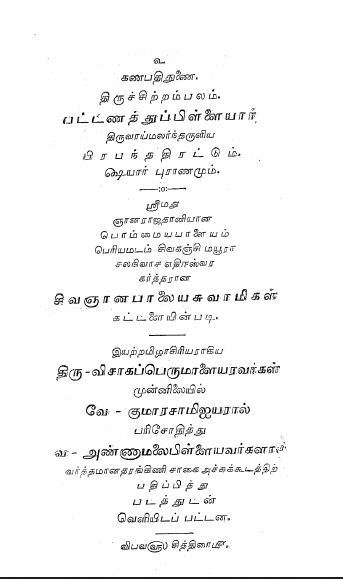 உ
கணபதிதுணை.
திருச்சிற்றம்பலம்.
பட்டணத்துப்பிள்ளையார்
திருவாய்மலர்ந்தருளிய
பிரபந்ததிரட்டும்.
ஷெயார் புராணமும்.
—:o:—
ஸ்ரீமது
ஞானராஜதானியான
பொம்மையபாளையம்
பெரியமடம் சிவகஞ்சி மயூரா
சலகிவாச எதிரீஸ்வர
கர்த்தரான
சிவஞானபாலையசுவாமிகள்
கட்டளையின்படி.
இயற்றமிழாசிரியராகிய
திரு-விசாகப்பெருமாளையரவர்கள்
முன்னிலையில்
வே-குமாரசாமிஐயரால்
பரிசோதித்து
வ-அண்ணாமலைபிள்ளையவர்களால்
வர்த்தமானதரங்கிணி சாகை அச்சுக்கூடத்திற்
பதிப்பித்து
படத்துடன்
வெளியிடப் பட்டன.
விபவளு சித்திரைமீ.